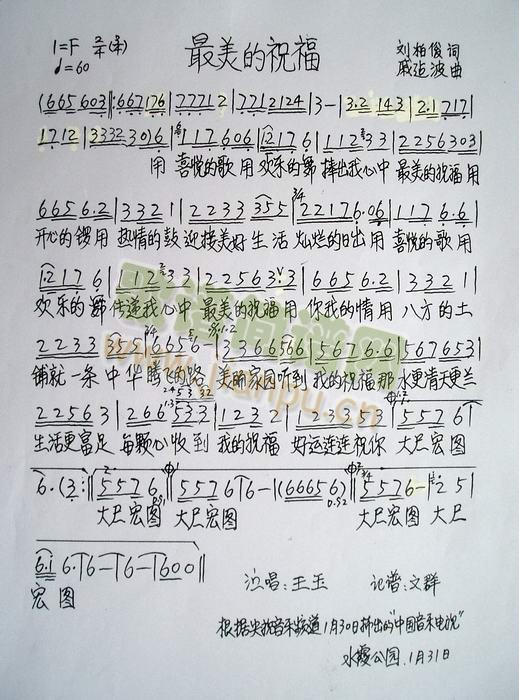 最美的祝福
1=F 2/4(3/4)
♩=60
刘柏俊 词
戚建波 曲
(665 603)‖:667176|77712|7712124|3-|3.2 143|2.1 717|
1712|3332 3016|117 606|1217 6|112 33|2256303|
用 喜悦的歌 用 欢乐的舞 捧出我心中 最美的祝福 用
6656.2|3321|2233 355|221 7 6.06|117 6.6|
开心的锣用 热情的鼓 迎接美好 生 活 灿烂的日出 用 喜悦的歌 用
1.217 6|112 33|22563.3|6656.2|3321|
欢乐的舞 传递我心中 最美的祝福 用 你我的情 用 八方的土
2233 355|6656-|336656 6|5676.6|567653|
铺就一条 中 华 腾飞的路 美丽家园听到 我的祝福 那水更清天更兰
22563|266 533|1232|123353|5576|
生活更富足 每颗心 收到 我的祝福 好运连连祝你 大尺宏图
6.(3:‖5576|5576|6-|(66656)|5576-|25|
大尺宏图 大尺宏图 大尺宏图 大尺
6.1 6.|6-|6-|600‖
宏 图
演唱:王玉 记谱:文群
根据央视音乐频道1月30日播出的"中国音乐电视"
水霞公园.1月31日